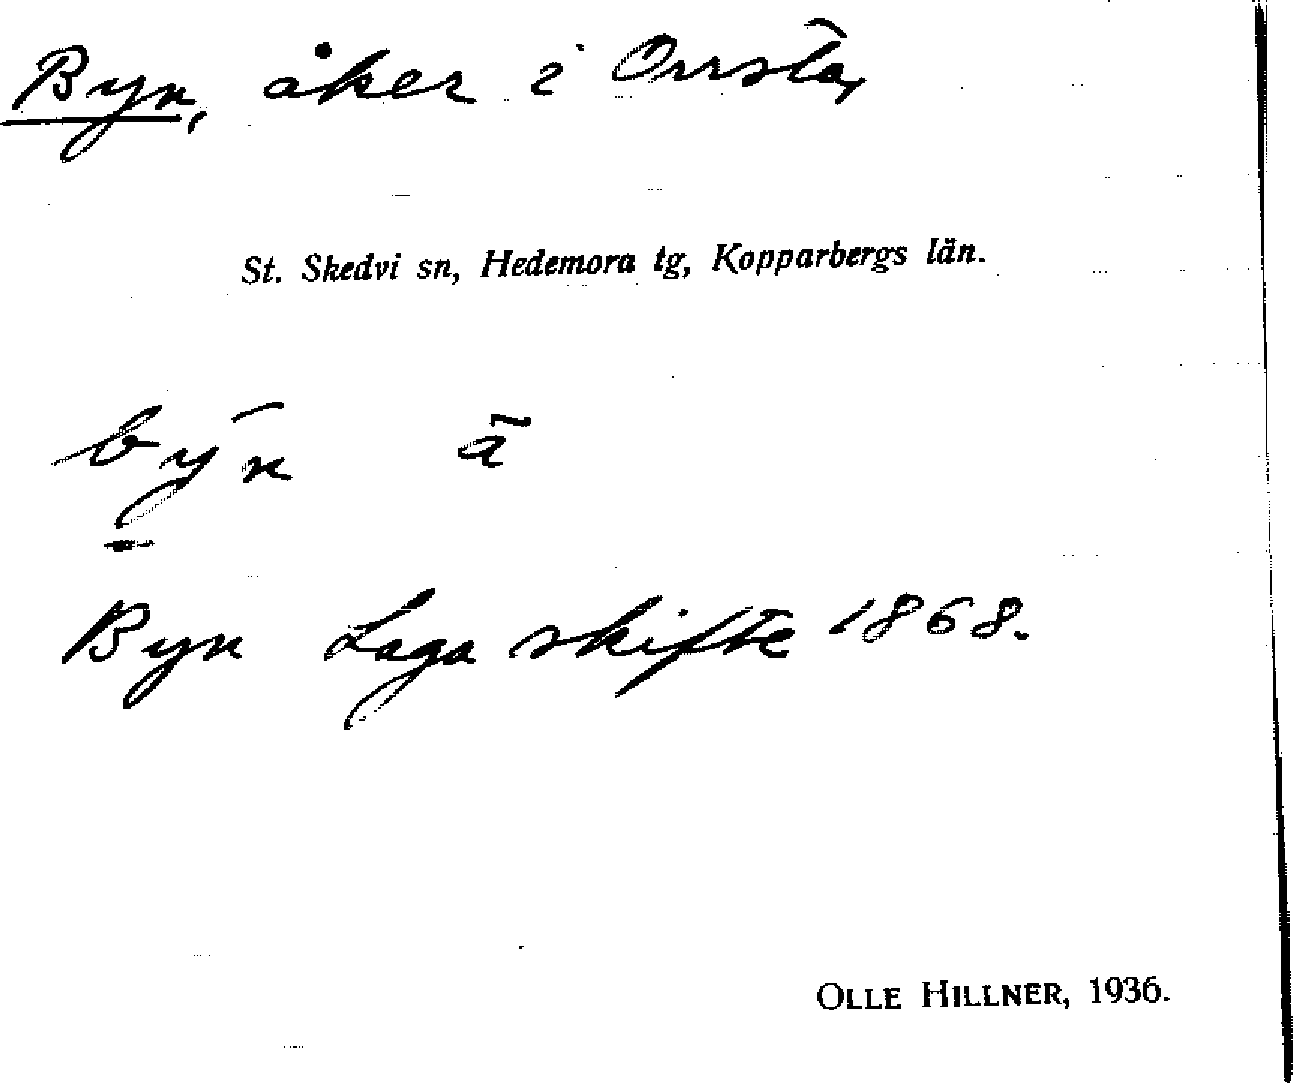 Byn, åker i Orrsta,
St. Skedvi sn, Hedemora tg, Kopparbergs län.
bȳn ã
Byn Laga skifte 1868.
OLLE HILLNER, 1936.